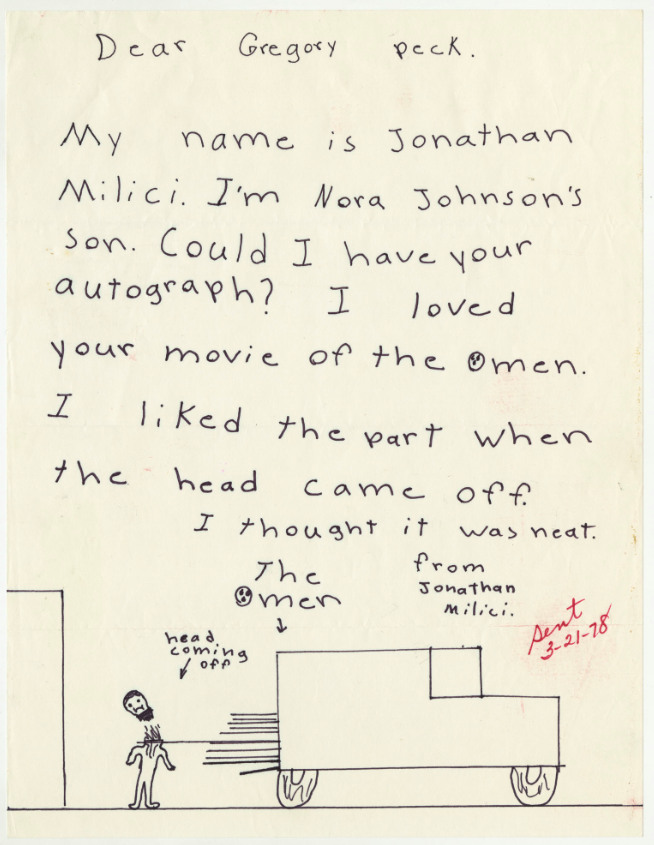 Dear Gregory peck.
My name is Jonathan
Milici. I'm Nora Johnson's
son. Could I have your
autograph? I loved
your movie of the Omen.
I liked the part when
the head came off.
I thought it was neat.
The
Omen
from
Jonathan
Milici.
sent
3-21-78
head
coming
off